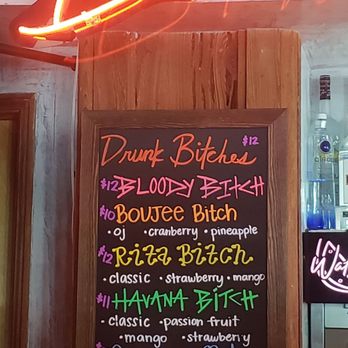 Drunk Bitches $12
$12 BLOODY BITCH
$10 BOUJEE Bitch
• OJ • cranberry • pineapple
$12 RITA BITCH
• classic • strawberry • mango
$11 HAVANA BITCH
• classic • passion fruit
• mango • strawberry